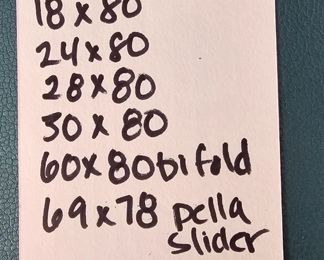 18 x 80
24 x 80
28 x 80
30 x 80
60 x 80 bifold
69 x 78 pella
slider